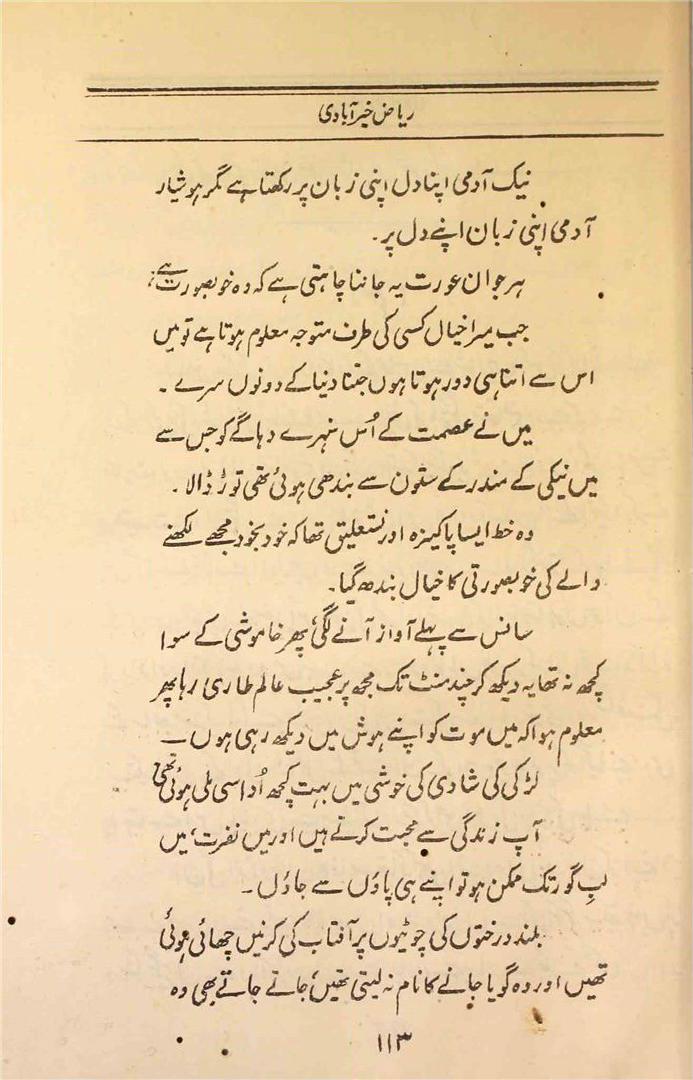 ریاض خیرآبادی
نیک آدمی اپنا دل اپنی زبان پر رکھتا ہے مگر ہوشیار
آدمی اپنی زبان اپنے دل پر۔
ہر جوان عورت یہ جاننا چاہتی ہے کہ وہ خوبصورت ہے؛
جب میرا خیال کسی کی طرف متوجہ معلوم ہوتا ہے تو میں
اس سے اتنا ہی دور ہوتا ہوں جتنا دنیا کے دونوں سرے ۔
میں نے عصمت کے اُس سنہرے دہاگے کو جس سے
میں نیکی کے مندر کے ستون سے بندھی ہوئی تھی توڑ ڈالا ۔
وہ خط ایسا پاکیزہ اور نستعلیق تھا کہ خود بخود مجھے لکھنے
والے کی خوبصورتی کا خیال بندھ گیا۔
سانس سے پہلے آواز آنے لگی، پھر خاموشی کے سوا
کچھ نہ تھا یہ دیکھ کر چند منٹ تک مجھ پر عجیب عالم طاری رہا پھر
معلوم ہوا کہ میں موت کو اپنے ہوش میں دیکھ رہی ہوں ۔
لڑکی کی شادی کی خوشی میں بہت کچھ اُداسی ملی ہوئی تھی
آپ زندگی سے محبت کرتے ہیں اور میں نفرت، میں
لبِ گور تک ممکن ہو تو اپنے ہی پاؤں سے جاؤں ۔
بلند درختوں کی چوٹیوں پر آفتاب کی کرنیں چھائی ہوئی
تھیں اور وہ گویا جانے کا نام نہ لیتی تھیں، جاتے جاتے بھی وہ
۱۱۳